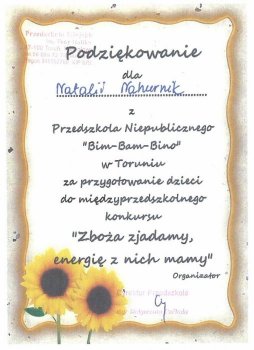 Podziękowanie
dla
Natalii Nahurnik
z
Przedszkola Niepublicznego
"Bim-Bam-Bino"
w Toruniu
za przygotowanie dzieci
do międzyprzedszkolnego
konkursu
"Zboża zjadamy,
energię z nich mamy"
Organizator